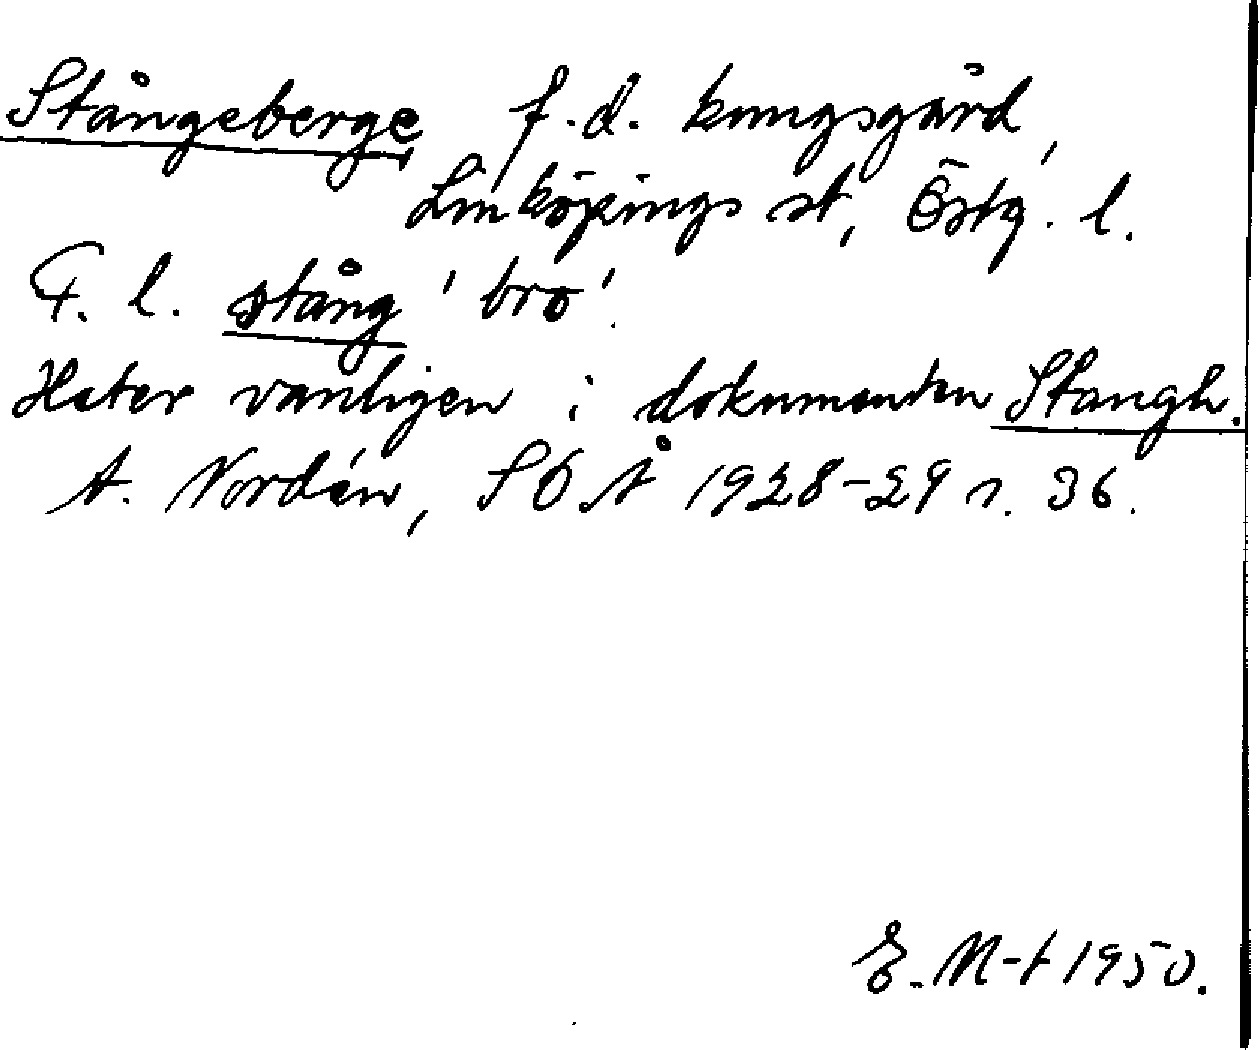 Stångeberge f.d. kungsgård,
Linköpings st, Östg. l.
F. l. stång 'bro'.
Heter vanligen i dokumenten Stangh.
A. Nordén, SOÅ 1928-29 s. 36.
E. M-t 1950.